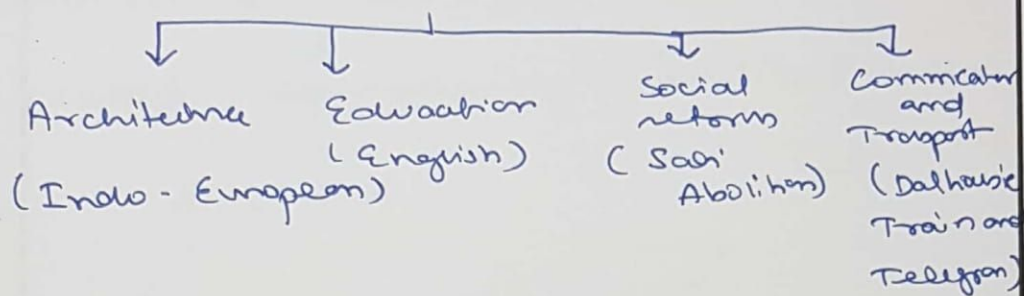 Architecture
(Indo - European)
Education
(English)
Social
reforms
(Sati
Abolition)
Commication
and
Transport
(Dalhousie
Train and
Telegram)